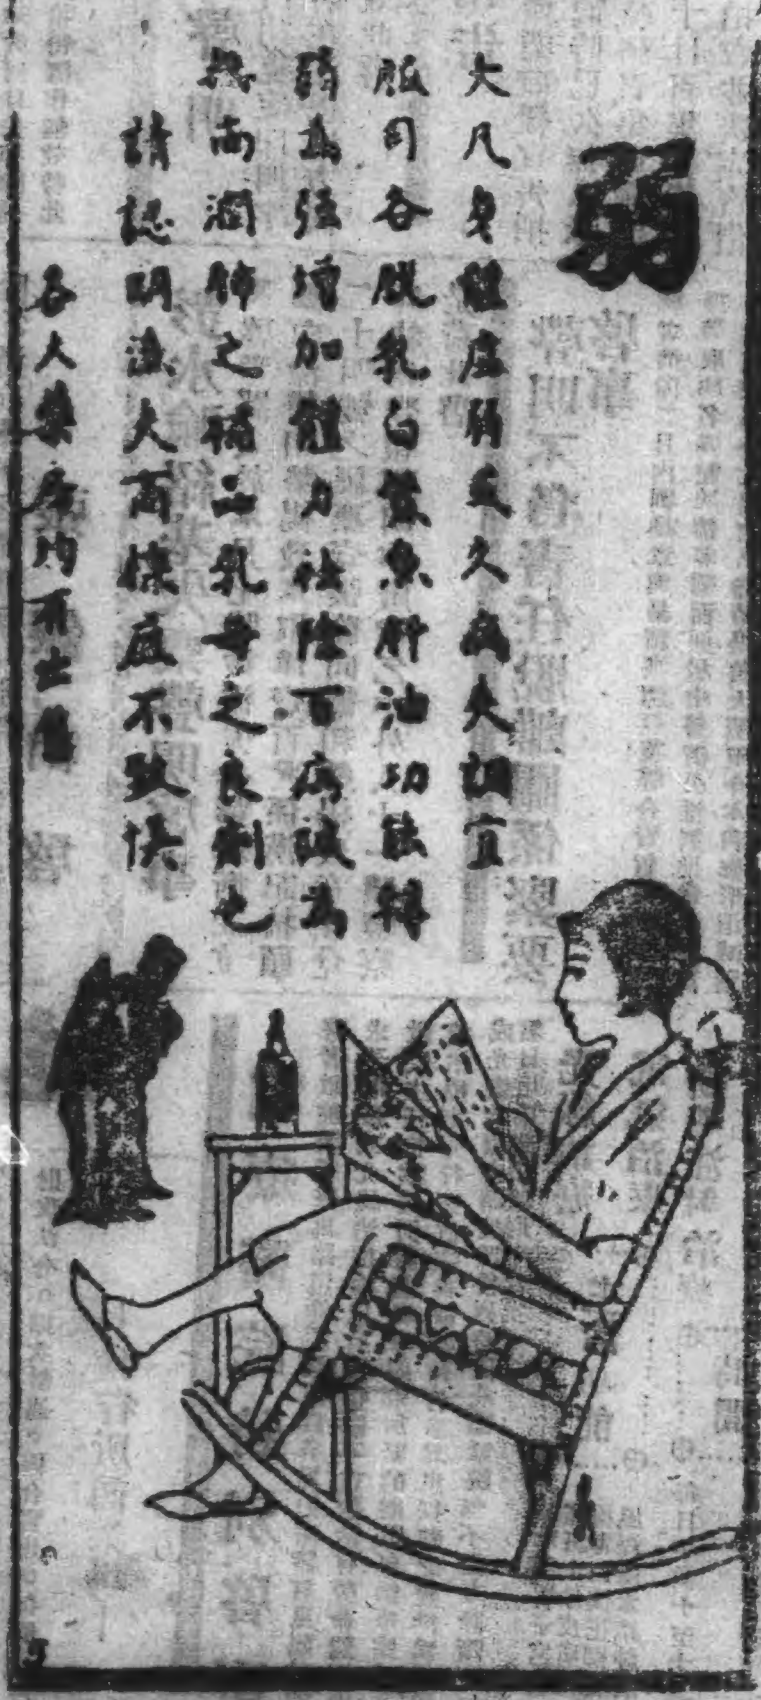 弱
大凡身體虛弱或久病失調宜
服司各脫乳白鰵魚肝油功能轉
弱為强增加體力祛除百病誠為
而潤肺之補品乳母之良劑也
請認明漁夫商標庶不致悞
各大藥房均有出售